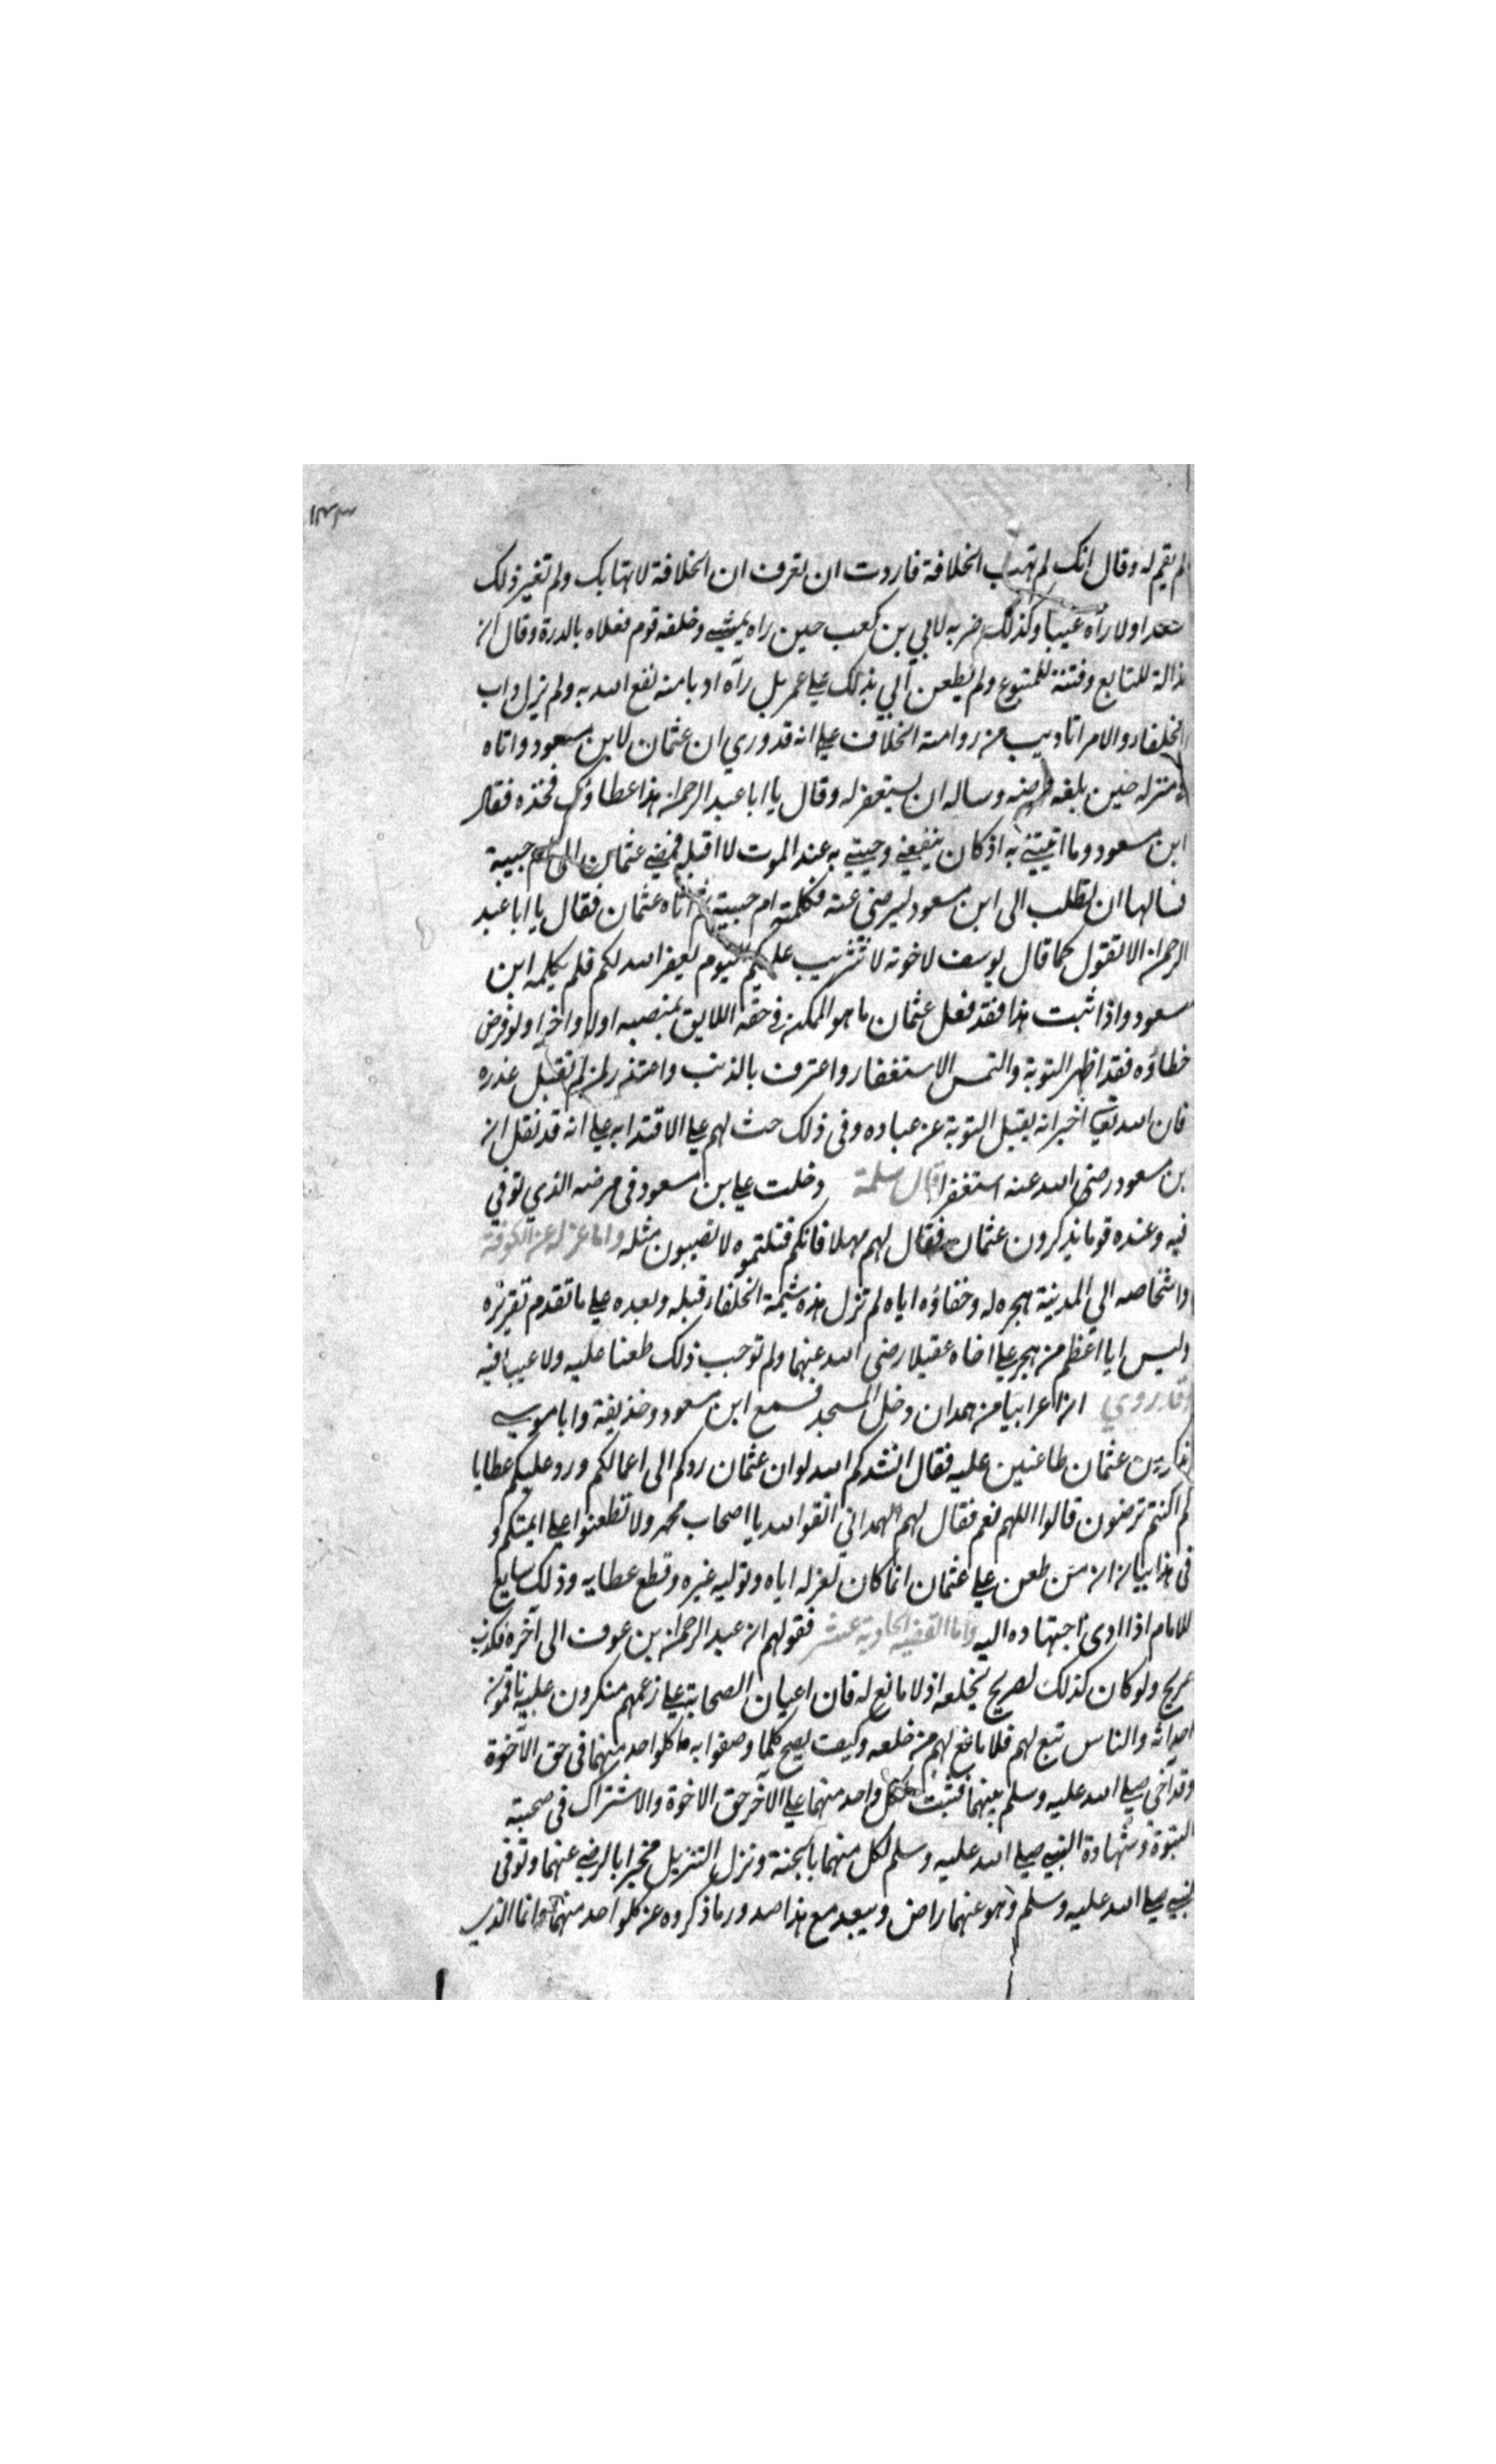 ١٣٣
لم يقم له وقال انك لم تهب الخلافة فاردت ان تعرف ان الخلافة لا تهابك ولم تغير ذلك
سعدا ولا رآه عيبا وكذلك ضربه لابي بن كعب حين راه يمشي وخلفه قوم فعلاه بالدرة وقال ان
مذالة للتابع وفتنة للمتبوع ولم يطعن أبي بذلك علي عمر بل رآه ادبا منه نفع الله به ولم يزل داب
الخلفاء والامرا تاديب من راوا منه الخلاف علي انه قد روي ان عثمان لابن مسعود واتاه
منزله حين بلغه مرضه وساله ان يستغفر له وقال يا ابا عبد الرحمن هذا عطاؤك فخذه فقال
ابن مسعود وما اتيتني به اذ كان ينفعني وجيتني به عند الموت لا اقبله فمضي عثمان الى ام حبيبة
فسالها ان تطلب الى ابن مسعود ليرضى عنه فكلمته ام حبيبة ثم اتاه عثمان فقال يا ابا عبد
الرحمن الا تقول كما قال يوسف لاخوته لا تثريب عليكم اليوم يغفر الله لكم فلم يكلمه ابن
مسعود واذا ثبت هذا فقد فعل عثمان ما هو الممكن في حقه اللايق بمنصبه اولا واخرا ولو فرض
خطاؤه فقد اظهر التوبة والتمس الاستغفار واعترف بالذنب واعتذر لمن لم تقبل عذره
فان الله تعالى اخبر انه يقبل التوبة عن عباده وفى ذلك حث لهم علي الاقتدا به علي انه قد نقل ان
بن مسعود رضى الله عنه استغفر قال سلمة دخلت علي ابن مسعود فى مرضه الذي توفي
فيه وعنده قوما يذكرون عثمان فقال لهم مهلا فانكم قتلتموه لا تصيبون مثله واما عزله عن الكوفة
واشخاصه الي المدينة هجره له وجفاؤه اياه لم تزل هذه شيمة الخلفاء قبله وبعده علي ما تقدم تقريره
وليس ايا اعظم من هجر علي اخاه عقيلا رضى الله عنهما ولم توجب ذلك طعنا عليه ولا عيبا فيه
وقد روي ان اعرابيا من همدان دخل المسجد فسمع ابن مسعود وحذيفة وابا موسي
ذاكرين عثمان طاعنين عليه فقال انشدكم الله لو ان عثمان ردكم الى اعمالكم ورد عليكم عطايا
كم اكنتم ترضون قالوا اللهم نعم فقال لهم الهمداني اتقوا الله يا اصحاب محمد ولا تطعنوا علي ايمتكم و
فى هذا بيان ان من طعن علي عثمان انما كان لعزله اياه وتوليه غيره وقطع عطايه وذلك سايغ
للامام اذا ادى اجتهاده اليه واما القضيه الحادية عشر فقولهم ان عبد الرحمن بن عوف الى آخره فكذب
صريح ولو كان كذلك لصرح بخلعه اذ لا مانع له فان اعيان الصحابة علي زعمهم منكرون عليه ناقمون
احداثه والناس تبع لهم فلا مانع لهم من خلعه وكيف يصح كلما وصفوا به كلواحد منهما فى حق الآخرة
وقد آخي صلي الله عليه وسلم بينهما فثبت لكل واحد منهما علي الآخر حق الاخوة والاشتراك فى صحبته
النبوة وشهادة النبي صلي الله عليه وسلم لكل منهما بالجنة ونزل التنزيل مخبرا بالرضي عنهما وتوفى
النبي صلي الله عليه وسلم وهو عنهما راض ويبعد مع هذا صدور ما ذكروه عن كلواحد منهما وانما الذي